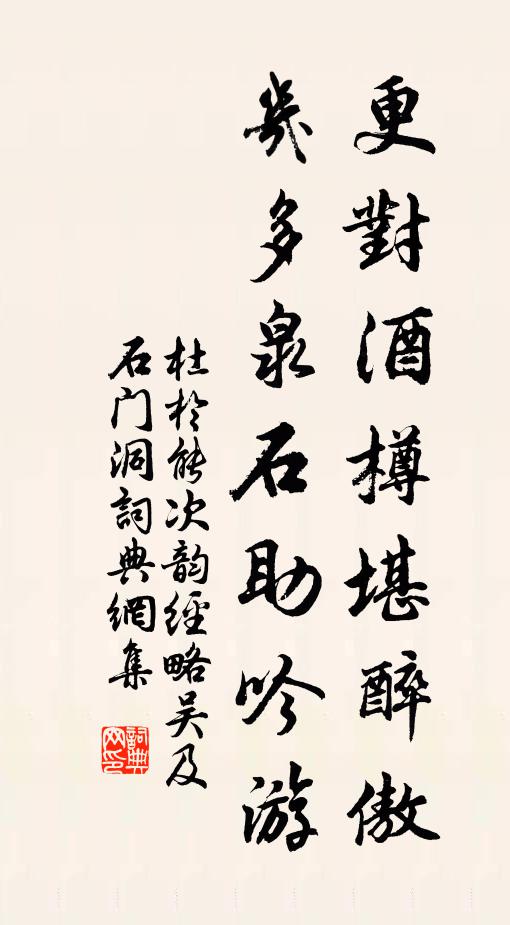 更對酒樽堪醉傲
幾多泉石助吟游
杜柃能次韵經略吴及
石门洞詞典網集
詞典網印